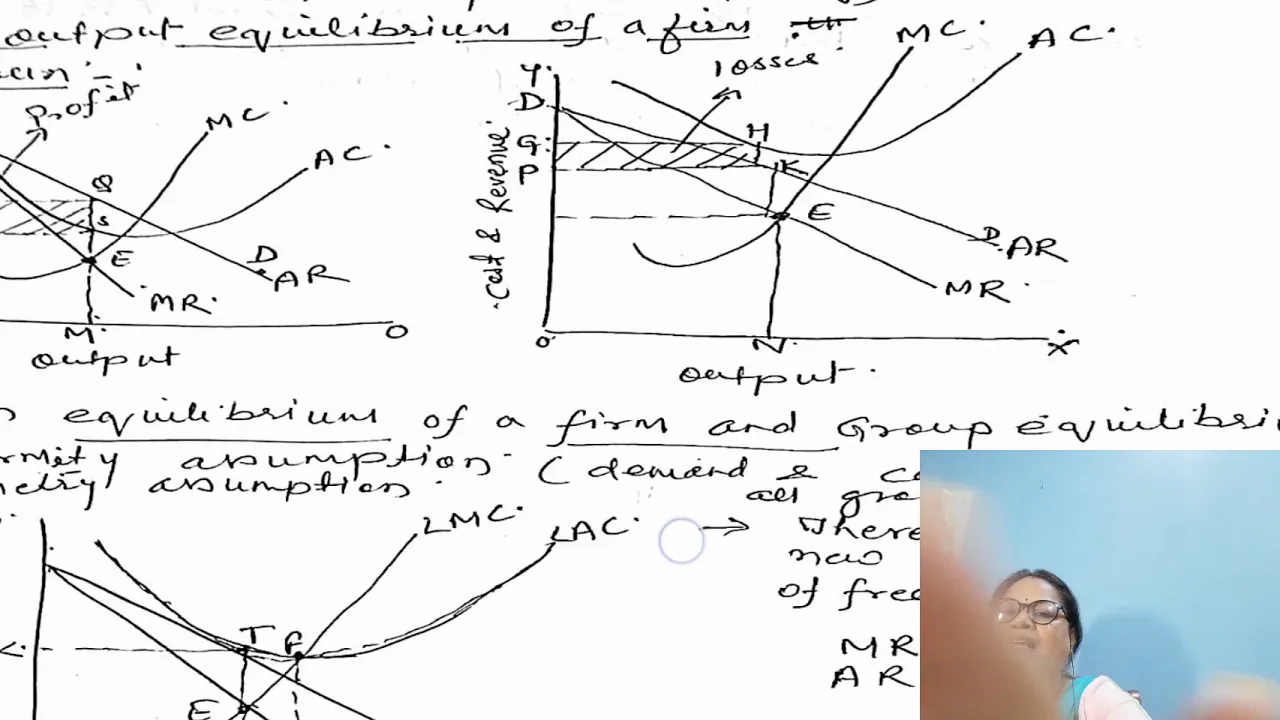 output equilibrium of a firm
Profit
MC
AC
Q
S
E
D
AR
MR
M
O
output
Y
D
G
P
Cost & Revenue
losses
MC
AC
H
K
E
D
AR
MR
O
N
X
output
equilibrium of a firm and Group
assumption (demand &
assumption
all
LMC
LAC
There
new
of free
T
F
E
MR
AR